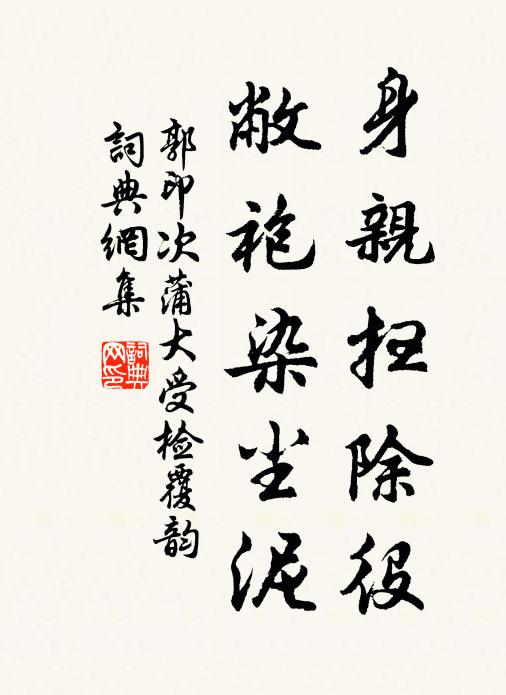 身親扫除役
敝袍染尘泥
郭印次蒲大受检覆韵
詞典網集
詞典网印